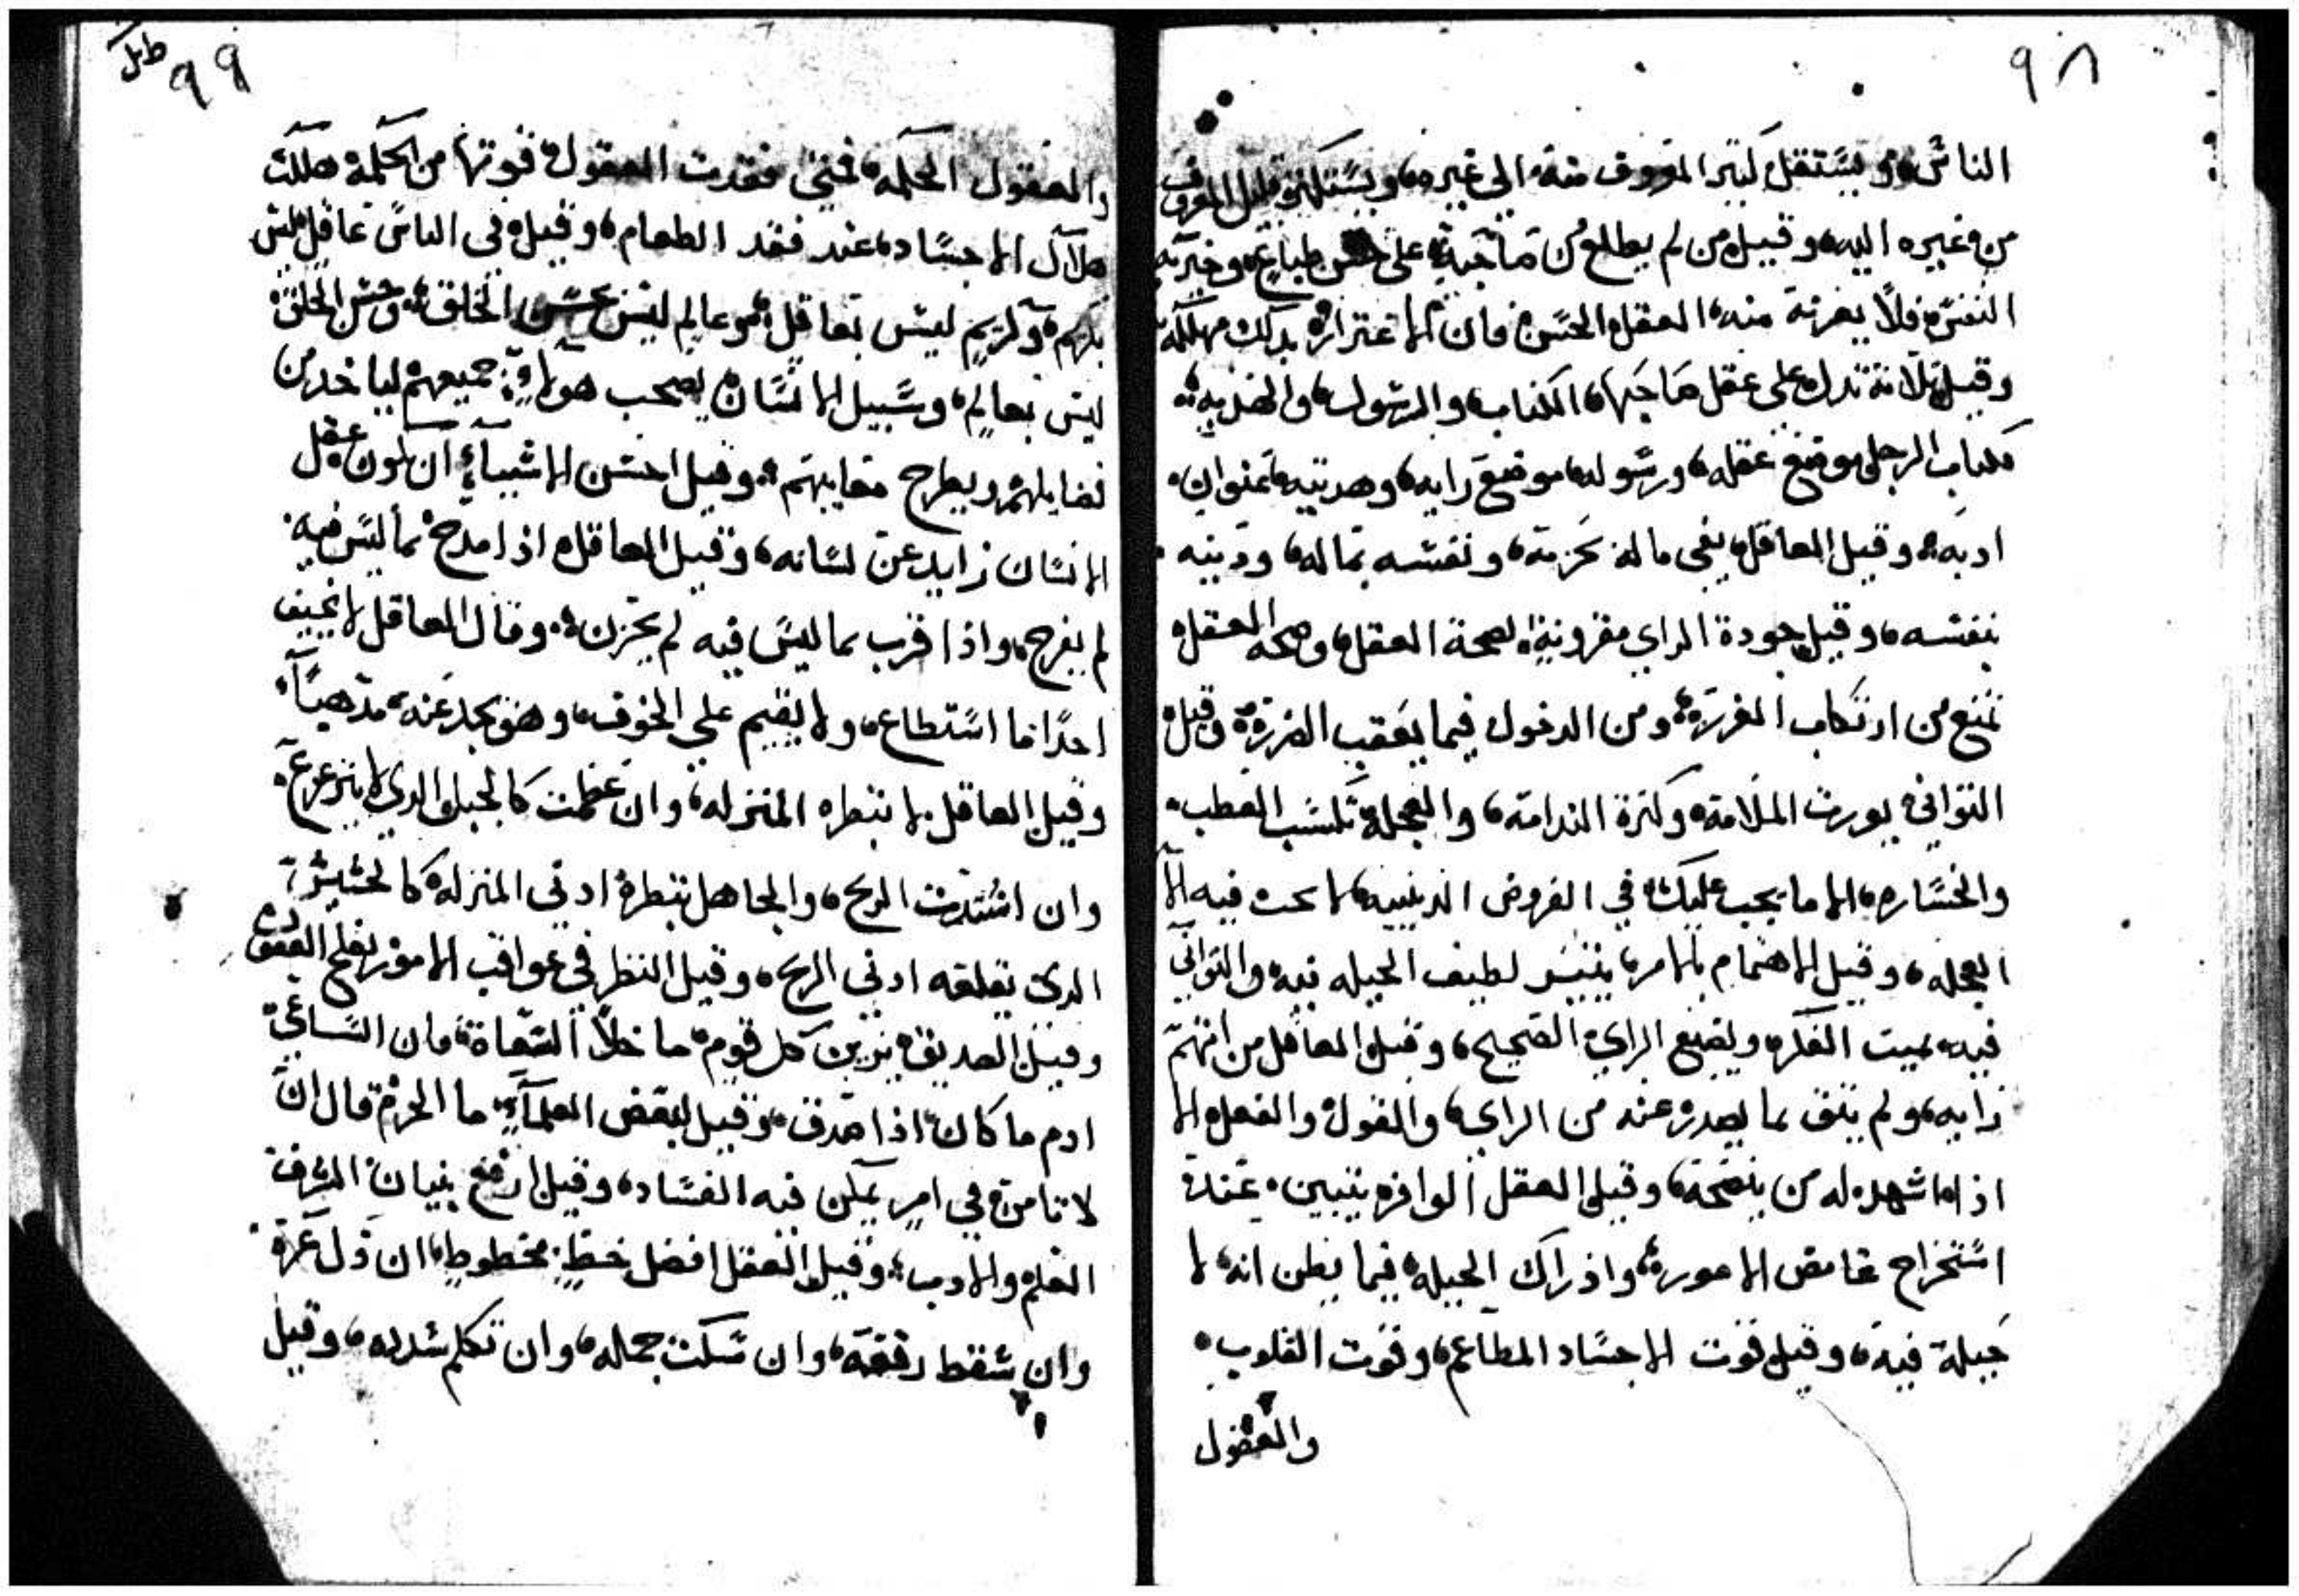 ٩٨
الناس، ويستقل كثير المعروف منه الى غيره، ويستكثر قليل المعروف
من غيره اليه، وقيل من لم يطلع من صاحبه على حسن طباعه وخيرية
النفس فلا يغرنة منه العقل الحسن فان الاغترار بدلك مهلكه
وقيل ثلاثة تدل على عقل صاحبها، الكتاب، والرسول، والهديه،
فكتاب الرجل موضع عقله، ورسوله موضع رايه، وهديته عنوان
ادبه، وقيل العاقل يقى ماله بحزمة، ونفسه بماله، ودينه
بنفسه، وقيل جودة الراي مقرونية لصحة العقل، وصحه العقل
تمنع من ارتكاب المغررة، ومن الدخول فيما يعقب الضررة وقيل
التواني يورث الملامة، وكثرة الندامة، والعجلة تكسب العطب
والخساره، الا ما يجب عليك في الفروض الدينيه، لا يحث فيه الا
العجله، وقيل الاهتمام بالامر يتيسر لطيف الحيله فيه، والتواني
فيه، يميت الفكر، ويضيع الراي الصحيح، وقيل العاقل من اتهم
رايه، ولم يثق بما يصدر عنه من الراي، والقول، والفعل الا
اذا ما شهد له من ينصحه، وقيل العقل الوافر يتبين عند
استخراج غامض الامور، وادراك الحيلة فيما يظن انه لا
حيلة فيه، وقيل قوت الاجساد المطاعم، وقوت القلوب
والعقول
٩٩
والعقول الحكمه، فمتى فقدت العقول قوتها من الحكمة هلكت
هلاك الاجساد، عند فقد الطعام، وقيل في الناس عاقل ليس
بكريم، وكريم ليس بعاقل، وعالم ليس بحسن الخلق، وحسن الخلق
ليس بعالم، وسبيل الانسان يصحب هولاء جميعهم لياخد من
فضايلهم ويطرح معايبهم، وقيل احسن الاشياء ان يكون عقل
الانسان زايد عن لسانه، وقيل العاقل اذا مدح بما ليس فيه
لم يفرح، واذا قرب بما ليس فيه لم يحزن، وقال العاقل لا يخيف
احدًا ما استطاع، ولا يقيم علي الخوف، وهو يجد عنه مذهبًا
وقيل العاقل لا تبطره المنزله، وان عظمت كالجبل الدي لا يتزعزع
وان اشتدت الريح، والجاهل تبطرة ادني المنزله كالحشيش
الدي تقلقه ادني الريح، وقيل النظر في عواقب الامور يلقح العقول
وقيل الصديق يزين كل قوم ما خلا السعاة، فان الساعي
ادم ما كان اذا صدق، وقيل لبعض العلماء ما الحزم قال ان
لا تامن في امر يمكن فيه الفساد، وقيل ارفع بنيان الشرف
العلم والادب، وقيل العقل افضل حظ محظوظ، ان ذل عزة
وان سقط رفعه، وان سكت جمله، وان تكلم سدده، وقيل